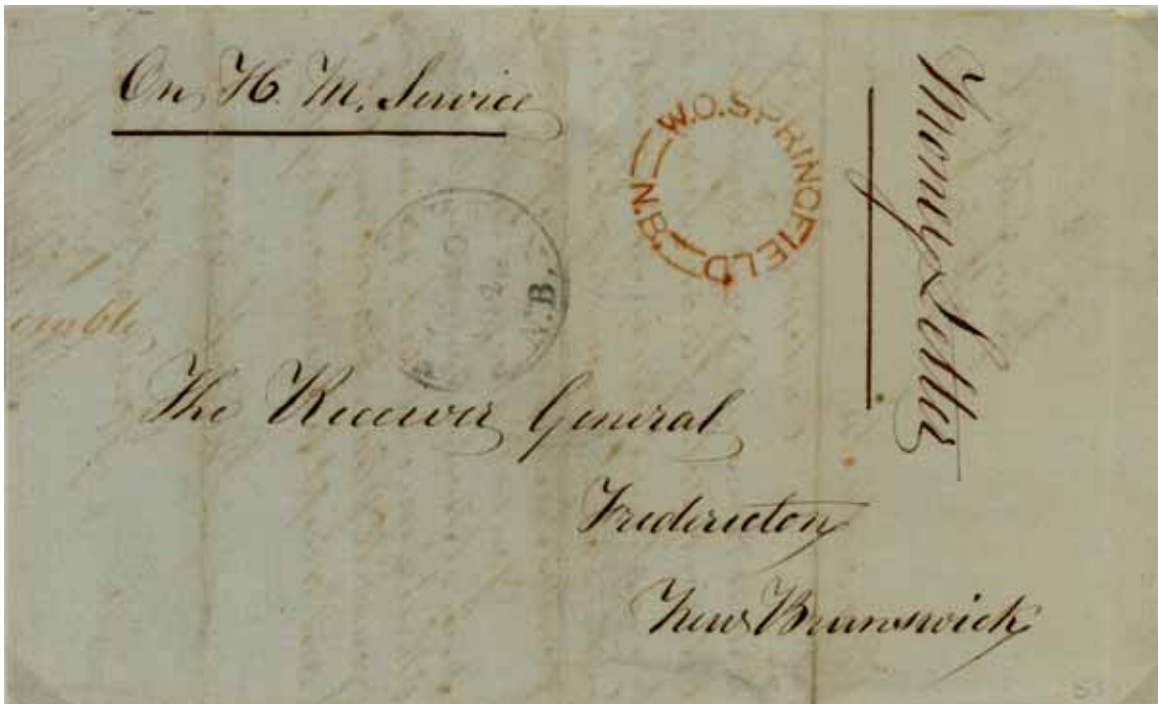 On H. M. Service
W.O. SPRINGFIELD
N.B.
Money Letter
N.B.
The Receiver General
Fredericton
New Brunswick